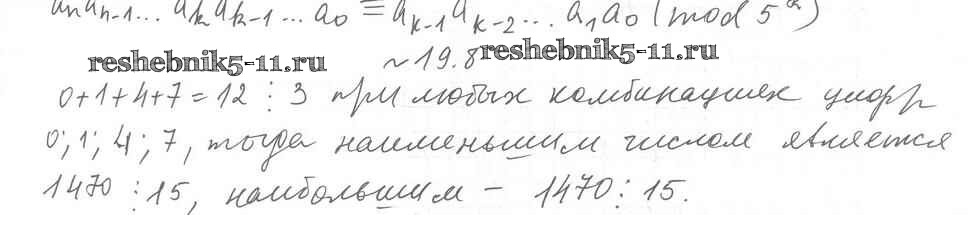 aₙaₙ₋₁... aₖaₖ₋₁... a₀ ≡ aₖ₋₁aₖ₋₂... a₁a₀ (mod 5ᵏ)
reshebnik5-11.ru ~19.8 reshebnik5-11.ru
0+1+4+7=12 ⋮ 3 при любых комбинациях цифр
0; 1; 4; 7, тогда наименьшим числом является
1470 ⋮ 15, наибольшим – 1470 ⋮ 15.